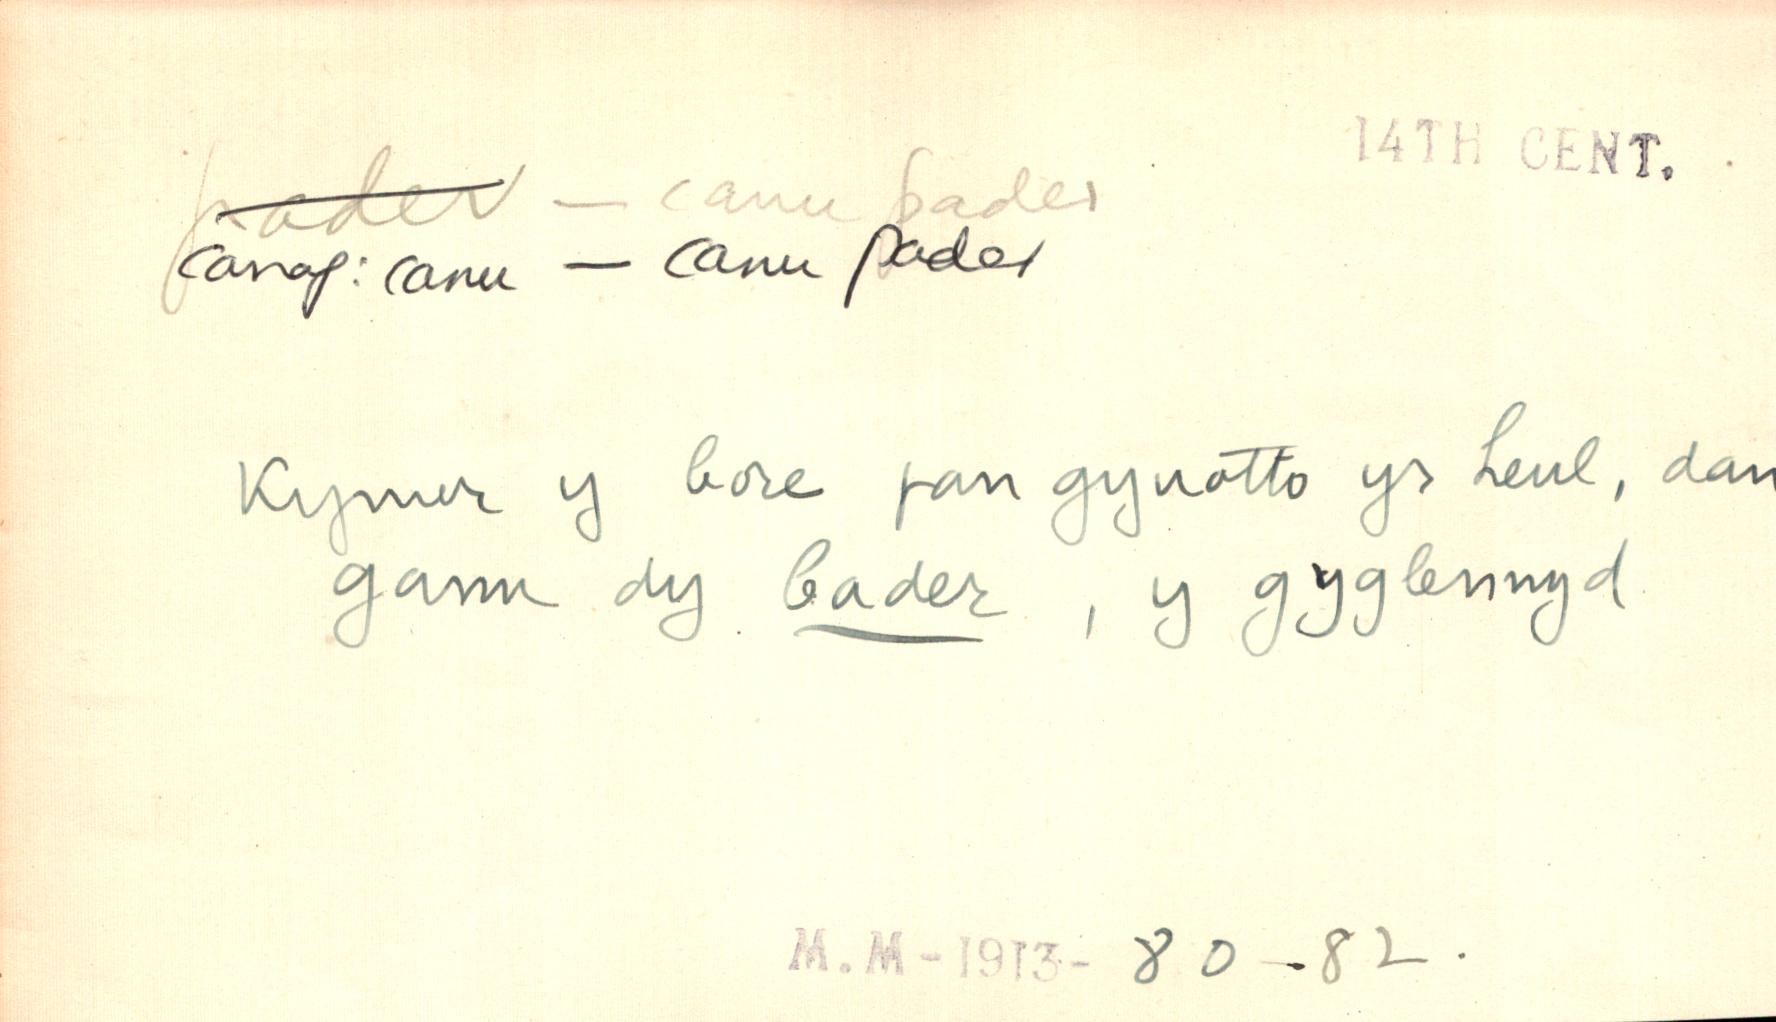 14TH CENT.
pader — canu pader
canaf: canu — canu pader
Kymer y bore pan gynotto yr heul, dan
ganu dy bader, y gyglennyd
M.M-1913- 80-82.